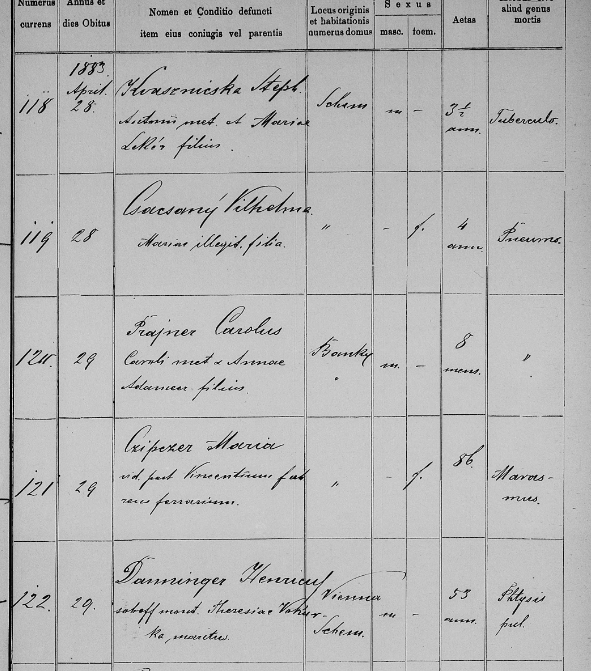 Numerus currens
Annus et dies Obitus
Nomen et Conditio defuncti
item eius coniugis vel parentis
Locus originis et habitationis numerus domus
Sexus
masc. foem.
Aetas
aliud genus mortis
118
1883
April.
28.
Steph.
Antonii met. et Mariae
filius.
Schem
m -
3 1/2
ann.
Tuberculo.
119
28
Csacsaný Vilhelma
Mariae illegit. filia.
"
- f.
4
ann
Pneumo.
120.
29
Prajner Carolus
Caroli met & Annae
filius.
Banky
"
m. -
8
mens.
"
121
29
Czipczer Maria
vid. post Vincentium fab
rum ferrarium.
"
- f.
86.
Maras-
mus.
122.
29.
Danninger Henricus
mont. Theresiae
ka maritus.
Vienna
Schem.
m -
53
ann.
Phtysis
pul.